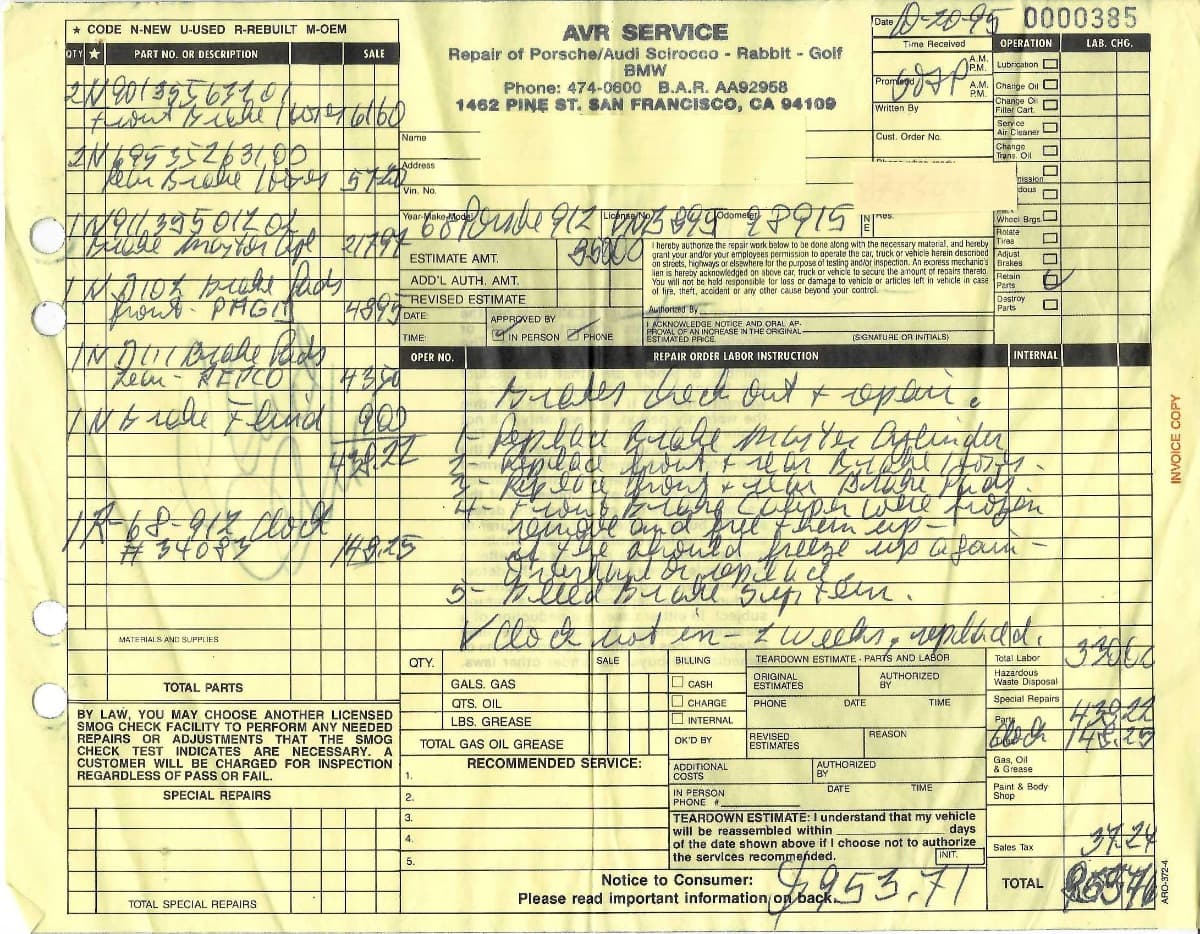 ★ CODE N-NEW U-USED R-REBUILT M-OEM
QTY ★ PART NO. OR DESCRIPTION SALE
2 N
Front Brake Hoses 61 60
2 N
Rear Brake Hoses
1 N 911 355 012
Brake Master Cyl 217 97
1 N D102 Brake Pads
front - PAGID 48 95
1 N D111 Brake Pads
Rear - REPCO 43 50
1 N Brake Fluid 9 00
438.22
1 R-68-912 Clock
# 34083 148.25
MATERIALS AND SUPPLIES
TOTAL PARTS
BY LAW, YOU MAY CHOOSE ANOTHER LICENSED
SMOG CHECK FACILITY TO PERFORM ANY NEEDED
REPAIRS OR ADJUSTMENTS THAT THE SMOG
CHECK TEST INDICATES ARE NECESSARY. A
CUSTOMER WILL BE CHARGED FOR INSPECTION
REGARDLESS OF PASS OR FAIL.
SPECIAL REPAIRS
TOTAL SPECIAL REPAIRS
AVR SERVICE
Repair of Porsche/Audi Scirocco - Rabbit - Golf
BMW
Phone: 474-0600 B.A.R. AA92958
1462 PINE ST. SAN FRANCISCO, CA 94109
Date 10-20-95 0000385
Time Received A.M. P.M.
Promised A.M. P.M.
Written By
Cust. Order No.
Name
Address
Vin. No.
Year-Make-Model 68 Porsche 912 License No. Odometer 98915
ESTIMATE AMT.
ADD'L AUTH. AMT.
REVISED ESTIMATE
DATE: APPROVED BY
TIME: IN PERSON PHONE
I hereby authorize the repair work below to be done along with the necessary material, and hereby
grant your and/or your employees permission to operate the car, truck or vehicle herein described
on streets, highways or elsewhere for the purpose of testing and/or inspection. An express mechanic's
lien is hereby acknowledged on above car, truck or vehicle to secure the amount of repairs thereto.
You will not be held responsible for loss or damage to vehicle or articles left in vehicle in case
of fire, theft, accident or any other cause beyond your control.
Authorized By
I ACKNOWLEDGE NOTICE AND ORAL AP-
PROVAL OF AN INCREASE IN THE ORIGINAL
ESTIMATED PRICE. (SIGNATURE OR INITIALS)
OPERATION LAB. CHG.
Lubrication
Change Oil
Change Oil
Filter Cart.
Service
Air Cleaner
Change
Trans. Oil
Wheel Brgs.
Rotate
Tires
Adjust
Brakes
Retain
Parts
Destroy
Parts
OPER NO. REPAIR ORDER LABOR INSTRUCTION INTERNAL
Brakes Check out + repair.
1- Replace Brake Master Cylinder
2- Replace front + rear Brake Hoses.
3- Replace front + rear Brake Pads.
4- Front Brake Caliper were frozen
remove and free them up -
if the should freeze up again -
overhaul or replace.
5- Bleed Brake System.
✓ Clock not in - 2 weeks, replaced.
QTY. SALE
GALS. GAS
QTS. OIL
LBS. GREASE
TOTAL GAS OIL GREASE
RECOMMENDED SERVICE:
1.
2.
3.
4.
5.
BILLING
CASH
CHARGE
INTERNAL
OK'D BY
TEARDOWN ESTIMATE - PARTS AND LABOR
ORIGINAL ESTIMATES AUTHORIZED BY
PHONE DATE TIME
REVISED ESTIMATES REASON
ADDITIONAL COSTS AUTHORIZED BY
IN PERSON PHONE # DATE TIME
TEARDOWN ESTIMATE: I understand that my vehicle
will be reassembled within days
of the date shown above if I choose not to authorize
the services recommended. INIT.
Notice to Consumer:
Please read important information on back.
$953.71
Total Labor 330 00
Hazardous
Waste Disposal
Special Repairs
Parts 438 22
Clock 148.25
Gas, Oil
& Grease
Paint & Body
Shop
Sales Tax 37.24
TOTAL
INVOICE COPY
ARO-372-4